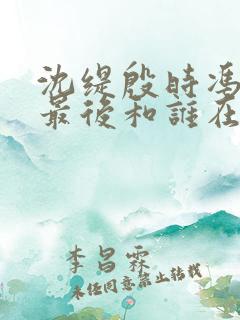 沈缇殷时冯
最後和誰在
李昌霖
未经同意禁止转载